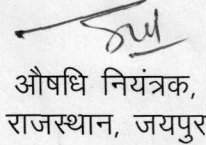 औषधि नियंत्रक,
राजस्थान, जयपुर